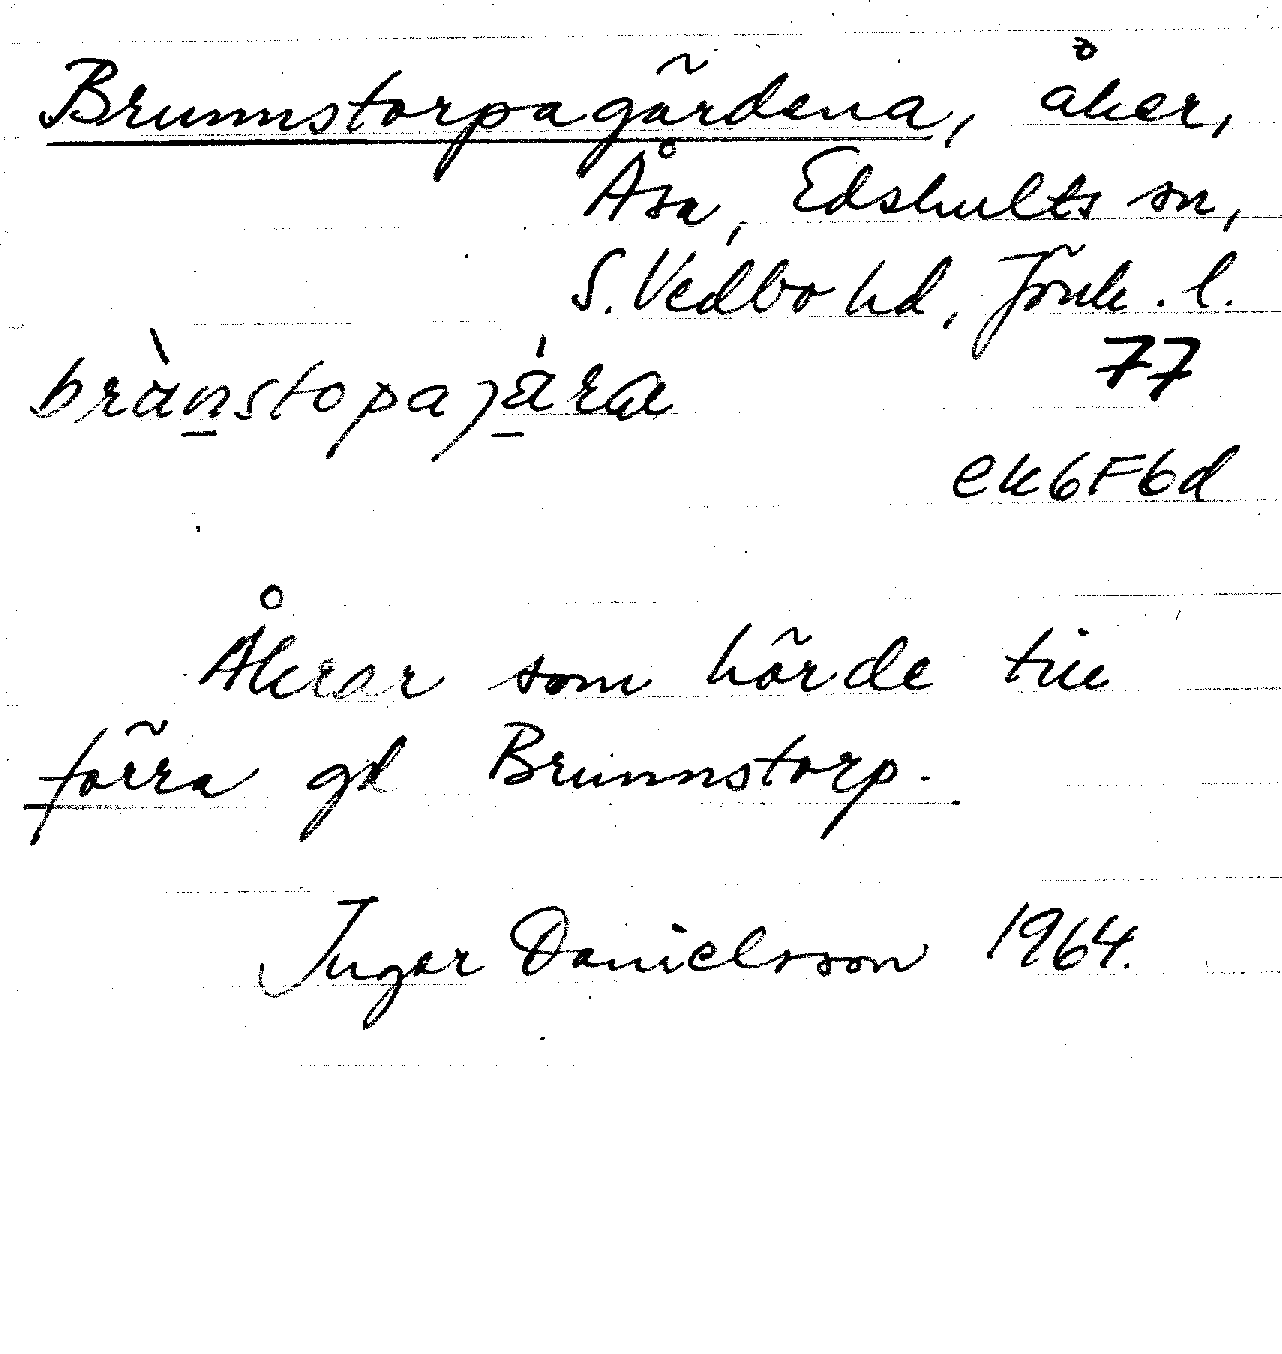 Brunnstorpagärdena, åker,
Åsa, Edshults sn,
S. Vedbo hd, Jönk. l.
77
brànstopajára
ek6F6d
Åkrar som hörde till
förra gd Brunnstorp.
Ingar Danielsson 1964.